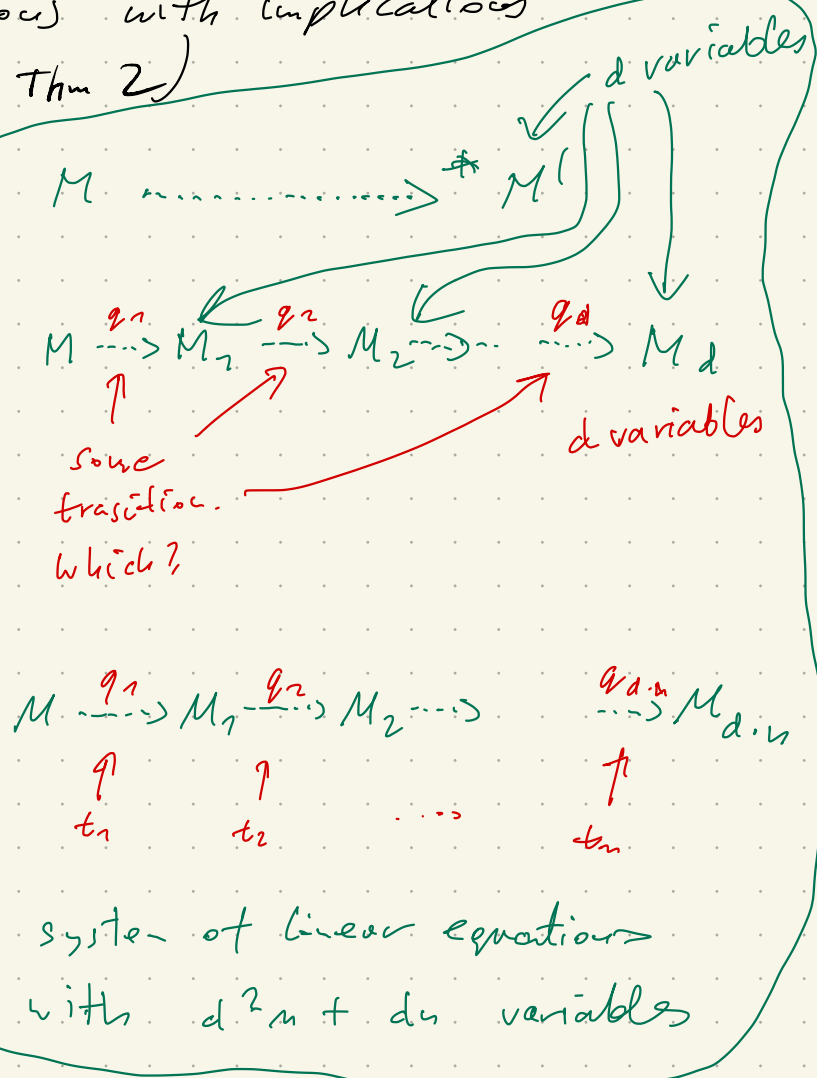 with implications
Thm 2)
d variables
M * M'
q1 q2 qd
M M1 M2 Md
d variables
some
trasition.
which?
q1 q2 qd.n
M M1 M2 Md.n
t1 t2 .... tn
system of linear equations
with d²n + dn variables